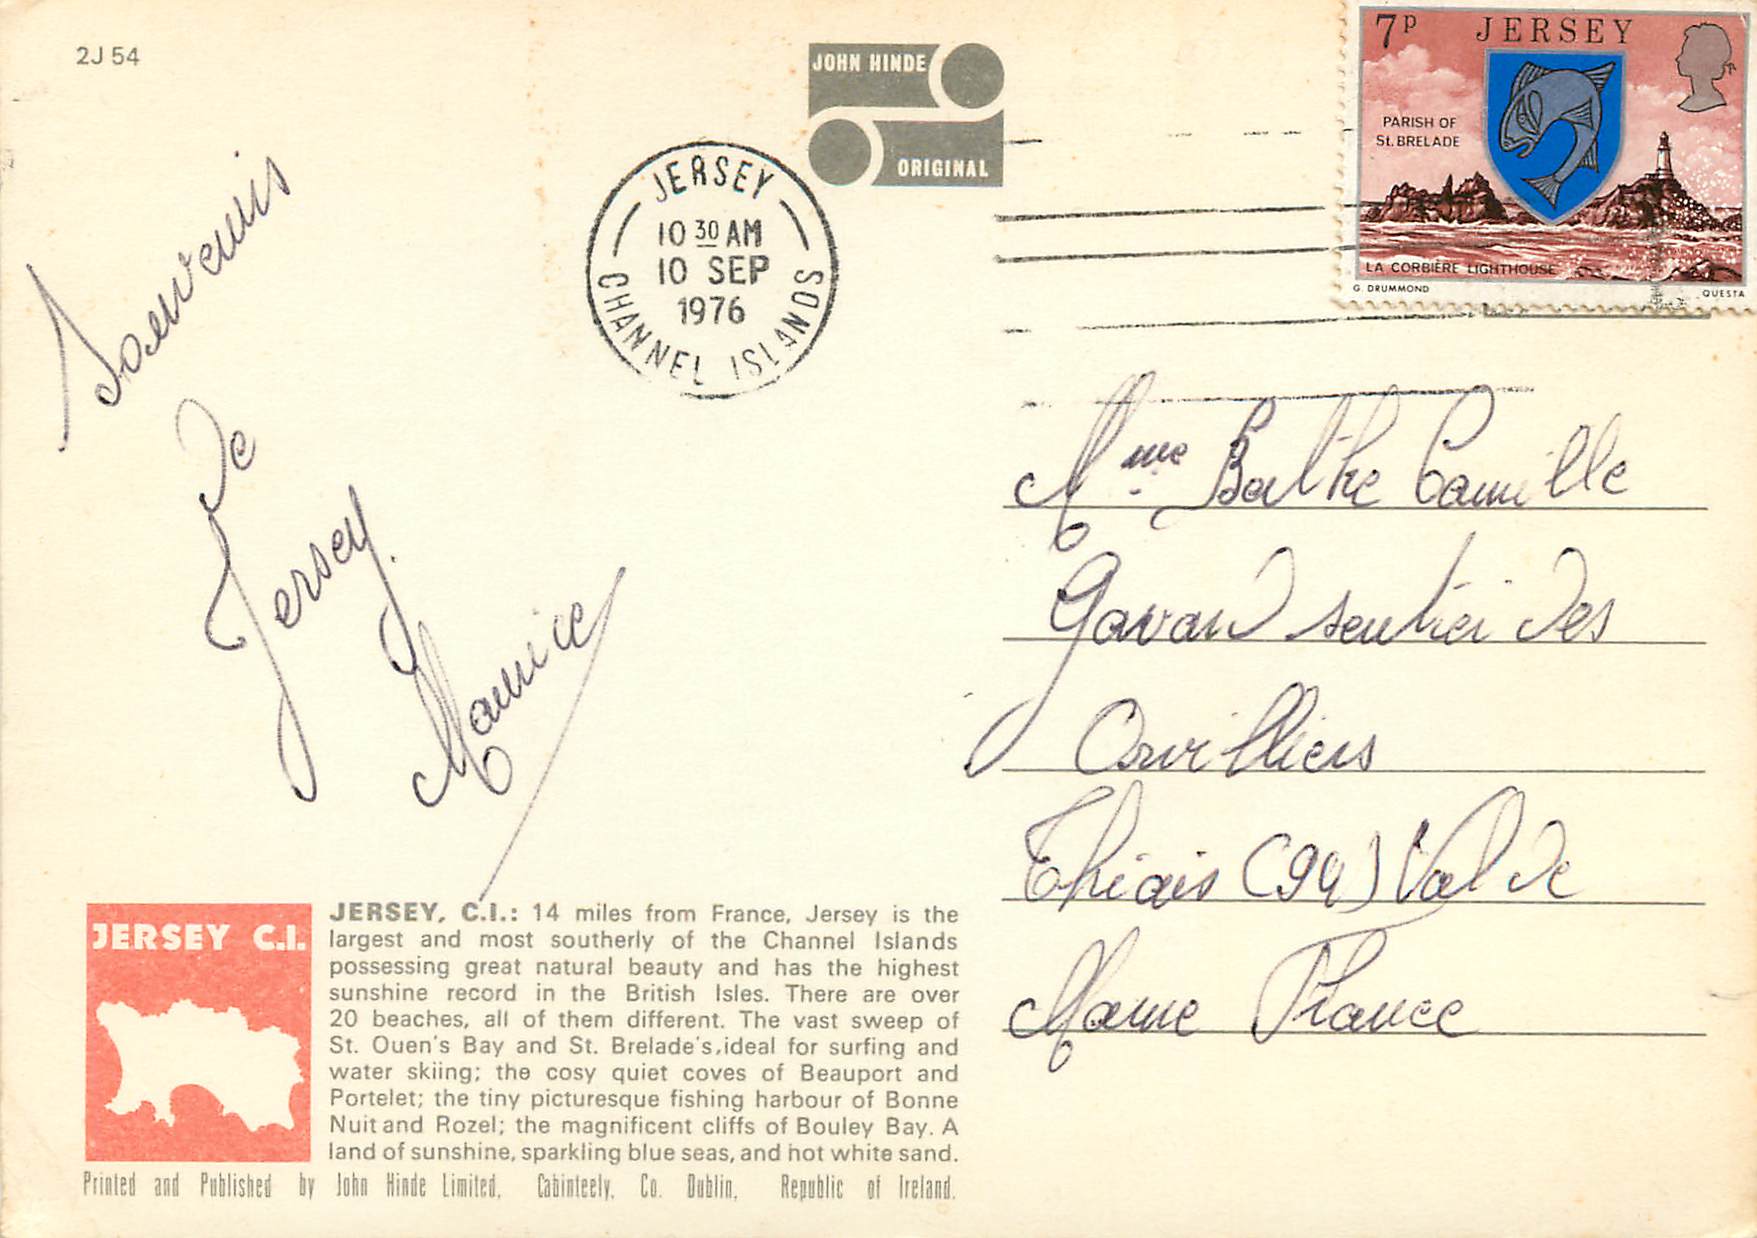 2J 54
JOHN HINDE
ORIGINAL
JERSEY
10 30 AM
10 SEP
1976
CHANNEL ISLANDS
7P JERSEY
PARISH OF
St. BRELADE
LA CORBIÈRE LIGHTHOUSE
G. DRUMMOND QUESTA
Souvenirs
De
Jersey.
Maurice
Mme Berthe Camille
Gavand sentier Des
Orvilliers
Thiais (94) Val De
Marne France
JERSEY C.I.
JERSEY, C.I.: 14 miles from France, Jersey is the
largest and most southerly of the Channel Islands
possessing great natural beauty and has the highest
sunshine record in the British Isles. There are over
20 beaches, all of them different. The vast sweep of
St. Ouen's Bay and St. Brelade's, ideal for surfing and
water skiing; the cosy quiet coves of Beauport and
Portelet; the tiny picturesque fishing harbour of Bonne
Nuit and Rozel; the magnificent cliffs of Bouley Bay. A
land of sunshine, sparkling blue seas, and hot white sand.
Printed and Published by John Hinde Limited, Cabinteely, Co. Dublin, Republic of Ireland.